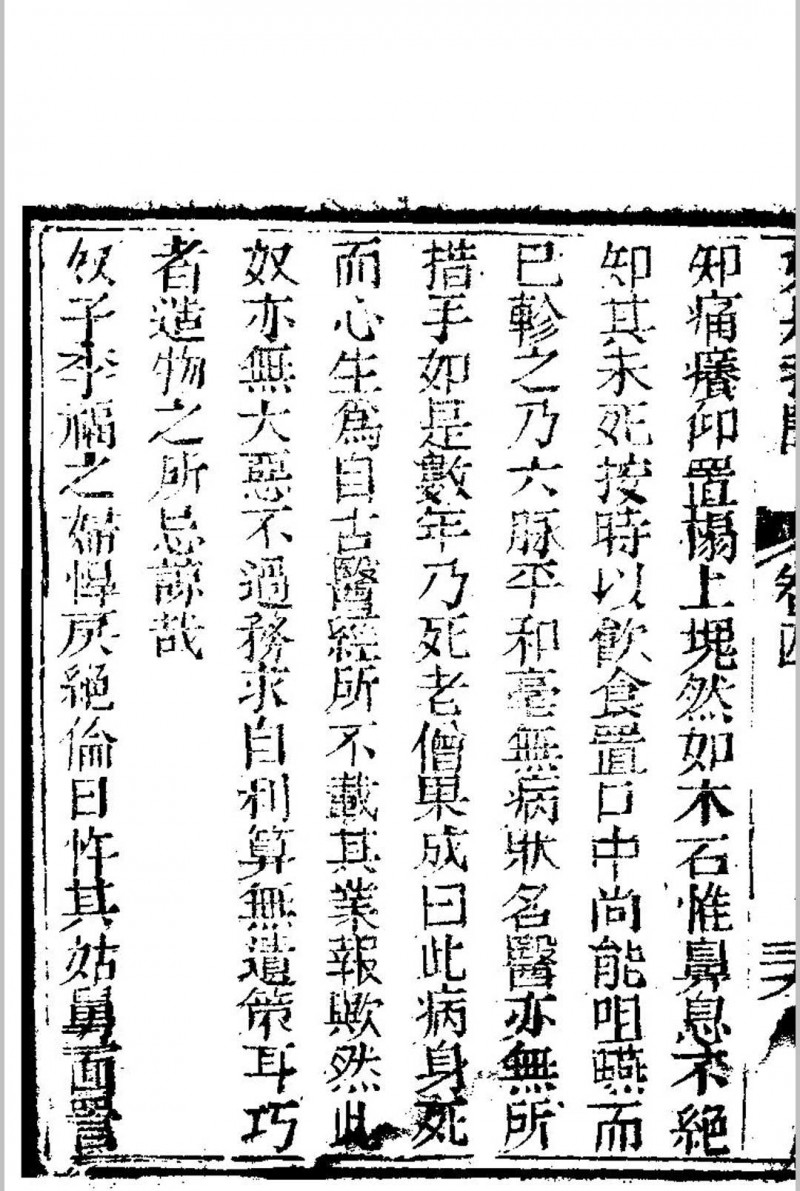 卷四
知痛癢仰置榻上塊然如木石惟鼻息不絕
知其未死按時以飲食置口中尚能咀嚥而
已軫之乃六脉平和毫無病狀名醫亦無所
措手如是數年乃死老僧果成曰此病身死
而心生為自古醫經所不載其業報歟然此
奴亦無大惡不過務求自利算無遺策耳巧
者造物之所忌諒哉
奴子李福之婦悍戾絕倫日忤其姑舅面詈